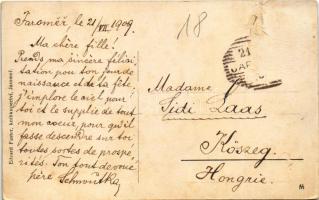 Jaroměř le 21/VII 1909.
Ma chère fille!
Prends ma sincère félici-
tation pour ton jour de
naissance et de la fête,
j'implore le ciel pour
toi et le supplie de tout
mon coeur, pour qu'il
fasse descendre sur toi
toutes sortes de prospé-
rités. Ton fout devoué
père
18
21
Madame
Lidi Laas
Kőszeg.
Hongrie.